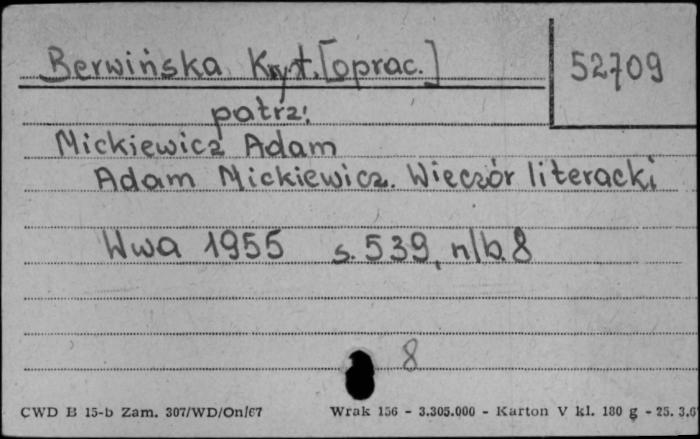 Berwińska Kryt. [oprac.]
52709
patrz:
Mickiewicz Adam
Adam Mickiewicz. Wieczór literacki
Wwa 1955 s. 539, nlb. 8
8
CWD B 15-b Zam. 307/WD/On/67 Wrak 156 - 3.305.000 - Karton V kl. 180 g - 25. 3.6